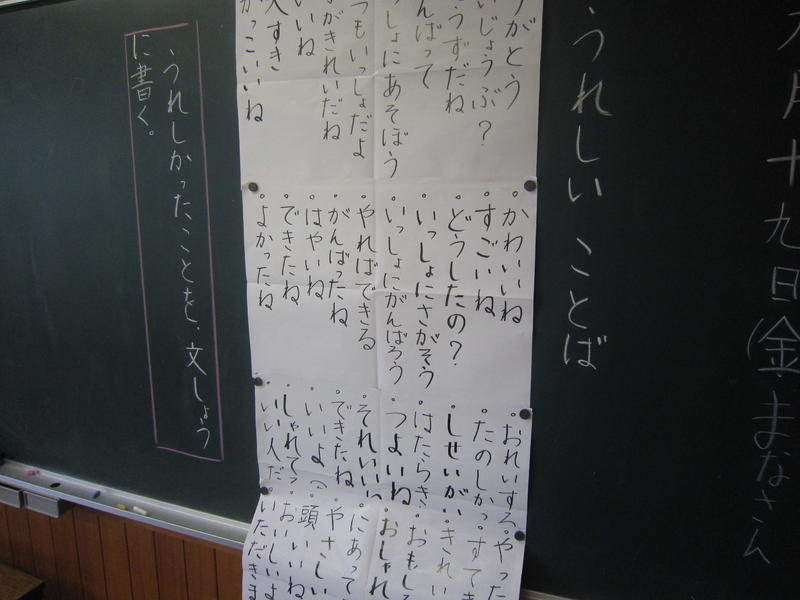 月十九日(金)まなさん
うれしい ことば
がとう
いじょうぶ？
うずだね
んばって
っしょにあそぼう
つもいっしょだよ
がきれいだね
いいね
すき
かっこいいね
。かわいいね
。すごいね
。どうしたの？
。いっしょにさがそう
。いっしょにがんばろう
。やればできる
。がんばったね
。はやいね
。できたね
。よかったね
。おれいする
。たのしかっ
。しせいがい
。はたらき
。つよいね
。それいい
。できたね
。いいよ
。しゃれてる
。いい人だ
。やった
。すてき
。きれい
。おもしろ
。おしゃれ
。にあって
。やさしい
。頭いいね
。おいしいよ
。いただきま
うれしかったことを、文しょう
に書く。